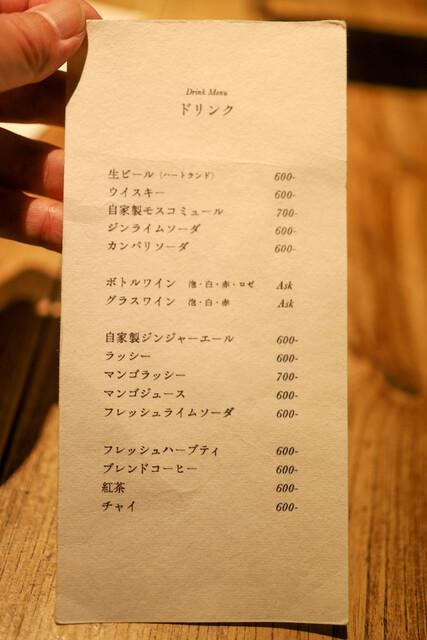 Drink Menu
ドリンク
生ビール（ハートランド） 600-
ウイスキー 600-
自家製モスコミュール 700-
ジンライムソーダ 600-
カンパリソーダ 600-
ボトルワイン 泡・白・赤・ロゼ Ask
グラスワイン 泡・白・赤 Ask
自家製ジンジャーエール 600-
ラッシー 600-
マンゴラッシー 700-
マンゴジュース 600-
フレッシュライムソーダ 600-
フレッシュハーブティ 600-
ブレンドコーヒー 600-
紅茶 600-
チャイ 600-